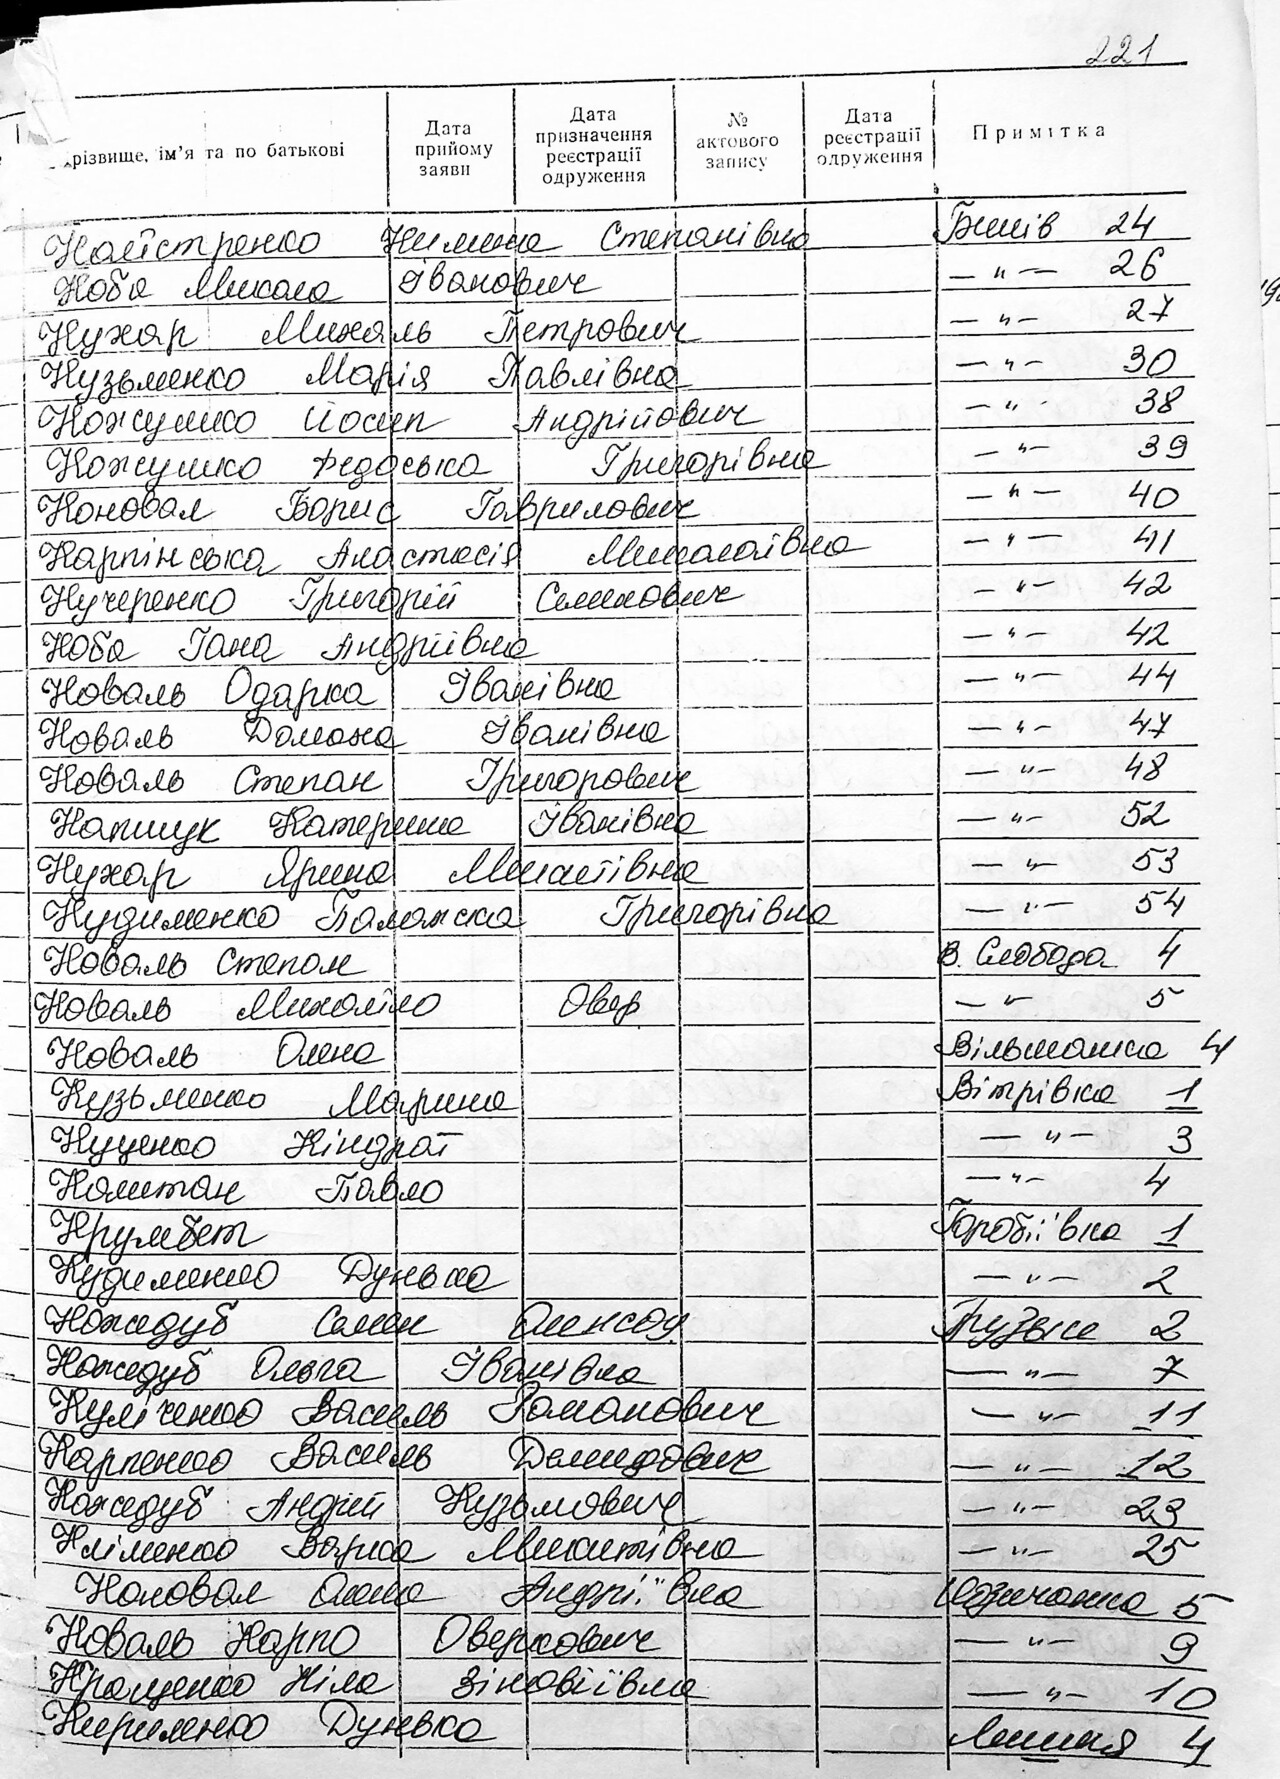 221
Прізвище, ім'я та по батькові
Дата прийому заяви
Дата призначення реєстрації одруження
№ актового запису
Дата реєстрації одруження
Примітка
Калістренко Килина Степанівна Бишів 24
Коба Микола Іванович —"— 26
Кухар Михаль Петрович —"— 27
Кузьменко Марія Павлівна —"— 30
Кожушко Йосип Андрійович —"— 38
Кожушко Федоська Григорівна —"— 39
Коновал Борис Гаврилович —"— 40
Карпінська Анастасія Миколаївна —"— 41
Кучеренко Григорій Семенович —"— 42
Коба Гана Андріївна —"— 42
Коваль Одарка Іванівна —"— 44
Коваль Домана Іванівна —"— 47
Коваль Степан Григорович —"— 48
Капшук Катерина Іванівна —"— 52
Кухар Ярина Микитівна —"— 53
Кудименко Палажка Григорівна —"— 54
Коваль Степан В. Слобода 4
Коваль Михайло Овер —"— 5
Коваль Олена Вільшанка 4
Кузьменко Марина Вітрівка 1
Куценко Кіндрат —"— 3
Капштан Павло —"— 4
Крумбет Горобіївка 1
Кудименко Дунька —"— 2
Кожедуб Семен Олексай Грузьке 2
Кожедуб Ольга Іванівна —"— 7
Куліченко Василь Романович —"— 11
Карпенко Василь Демидович —"— 12
Кожедуб Андрій Кузьмович —"— 23
Кліменко Варка Микитівна —"— 25
Коновал Олена Андріївна Козичанка 5
Коваль Карпо Оверкович —"— 9
Кращенко Ніла Зіновіївна —"— 10
Кириленко Дунька Лишня 4